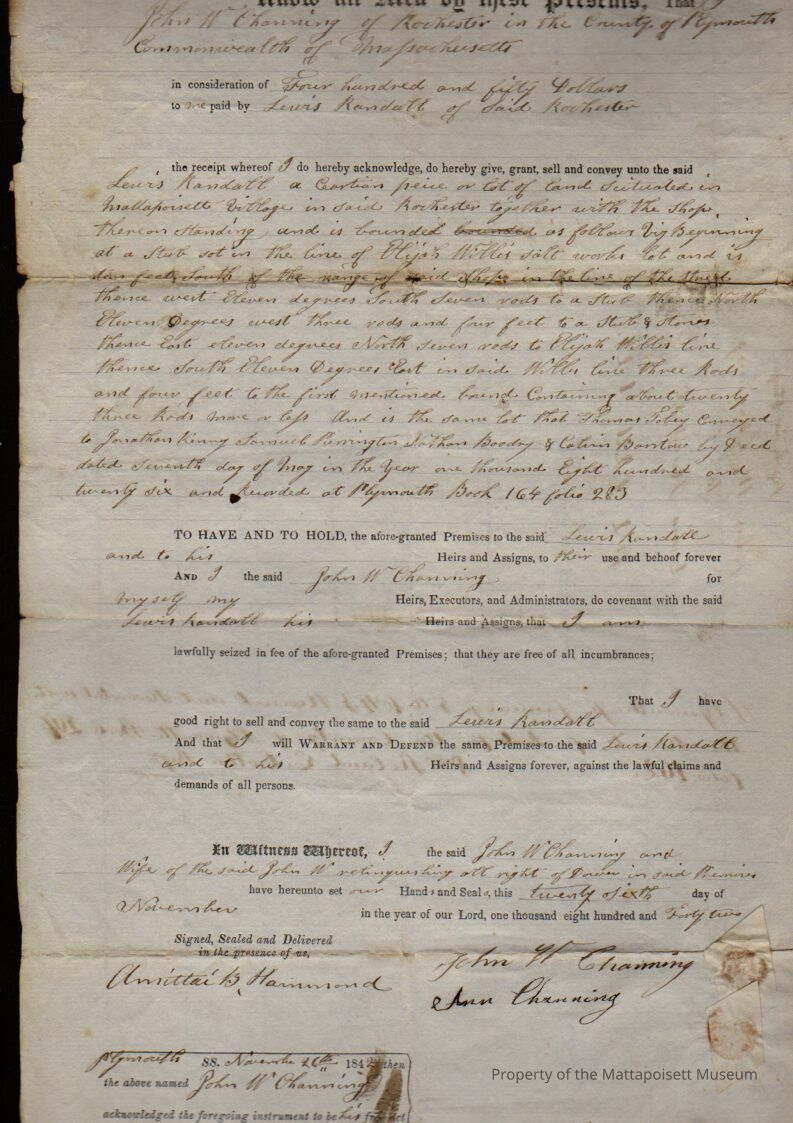 Know all Men by these Presents, That I
John W Channing of Rochester in the County of Plymouth
Commonwealth of Massachusetts
in consideration of Four hundred and fifty Dollars
to me paid by Lewis Randall of said Rochester
the receipt whereof I do hereby acknowledge, do hereby give, grant, sell and convey unto the said
Lewis Randall a Ceartian peice or lot of land situated in
Mattapoisett Village in said Rochester together with the shop,
thereon standing and is bounded bounded as follows viz Beginning
at a Stub sot in the line of Elijah Willis salt works lot and is
feet South of the range of said shop in the line of the street
thence west Eleven degrees South Seven rods to a Stub thence North
Eleven Degrees west three rods and four feet to a Stub & Stones
thence East eleven degrees North Seven rods to Elijah Willis line
thence South Eleven Degrees East in said Willis line three Rods
and four feet to the first mentioned bound Containing about twenty
three Rods more or less And is the same lot that Thomas Tobey Conveyed
to Jonathan Kinny Samuel Purrington Nathan Boodry & Calvin Barstow by Deed
dated Seventh day of May in the Year one thousand Eight hundred and
twenty six and Recorded at Plymouth Book 164 folio 283
TO HAVE AND TO HOLD, the afore-granted Premises to the said Lewis Randall
and to his Heirs and Assigns, to their use and behoof forever
AND I the said John W Channing for
myself my Heirs, Executors, and Administrators, do covenant with the said
Lewis Randall his Heirs and Assigns, that I am
lawfully seized in fee of the afore-granted Premises; that they are free of all incumbrances;
That I have
good right to sell and convey the same to the said Lewis Randall
And that I will WARRANT AND DEFEND the same Premises to the said Lewis Randall
and to his Heirs and Assigns forever, against the lawful claims and
demands of all persons.
In Witness Whereof, I the said John W Channing and
Wife of the said John W relinquishing all right of Dower in said Premises
have hereunto set our Hands and Seals, this twenty sixth day of
November in the year of our Lord, one thousand eight hundred and Forty two
Signed, Sealed and Delivered
in the presence of us,
Amittai B. Hammond
John W Channing
Ann Channing
Plymouth SS. Novembr 26th 1842 then
the above named John W Channing
acknowledged the foregoing instrument to be his free act
Property of the Mattapoisett Museum